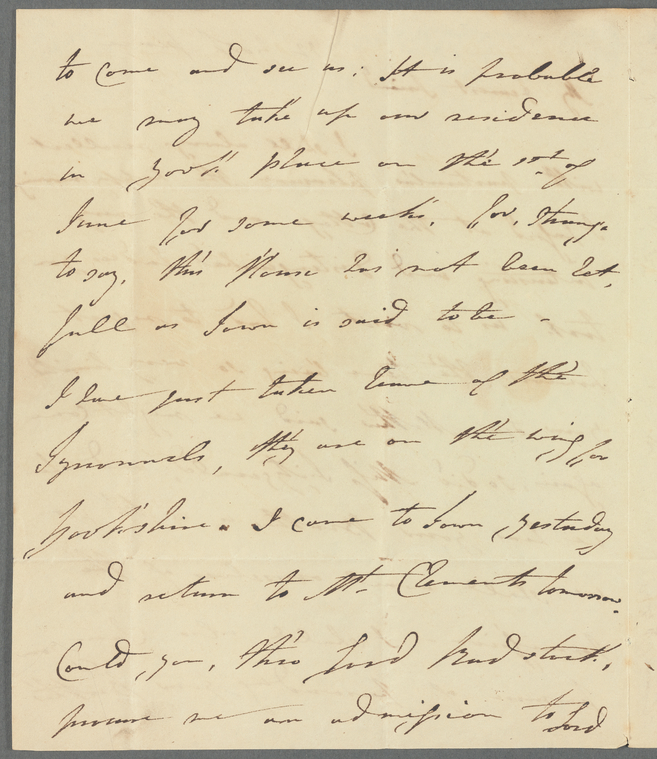 to come and see us: It is probable
we may take up our residence
in York Place on the 1st of
June for some weeks, for, strange
to say, this House has not been let,
full as Town is said to be -
I have just taken leave of the
they are on the wing for
Yorkshire. I came to Town yesterday
and return to Mr. Clements tomorrow.
Could you, thro Lord Radstock,
procure me an admission to Lord